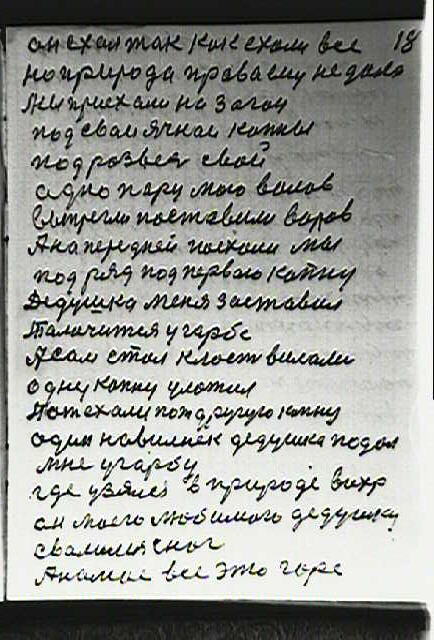 он ехал так как ехали все 18
но природа права ему не дала
Мы приехали на загон
под свои ячнаи копны
под розвея свой
одно пару мого волов
выпрегли поставили воров
Ана передней поехали мы
под ряд под первою копну
Дедушка меня заставил
Талочитея у гарбе
Асам стал класт вилами
одну копну уложил
Потехали под другую копну
один навилнёк дедушка подал
мне у гарбу
где узялся в природе вихр
он моего любимого дедушку
свалил с ног
Анамне все это горе